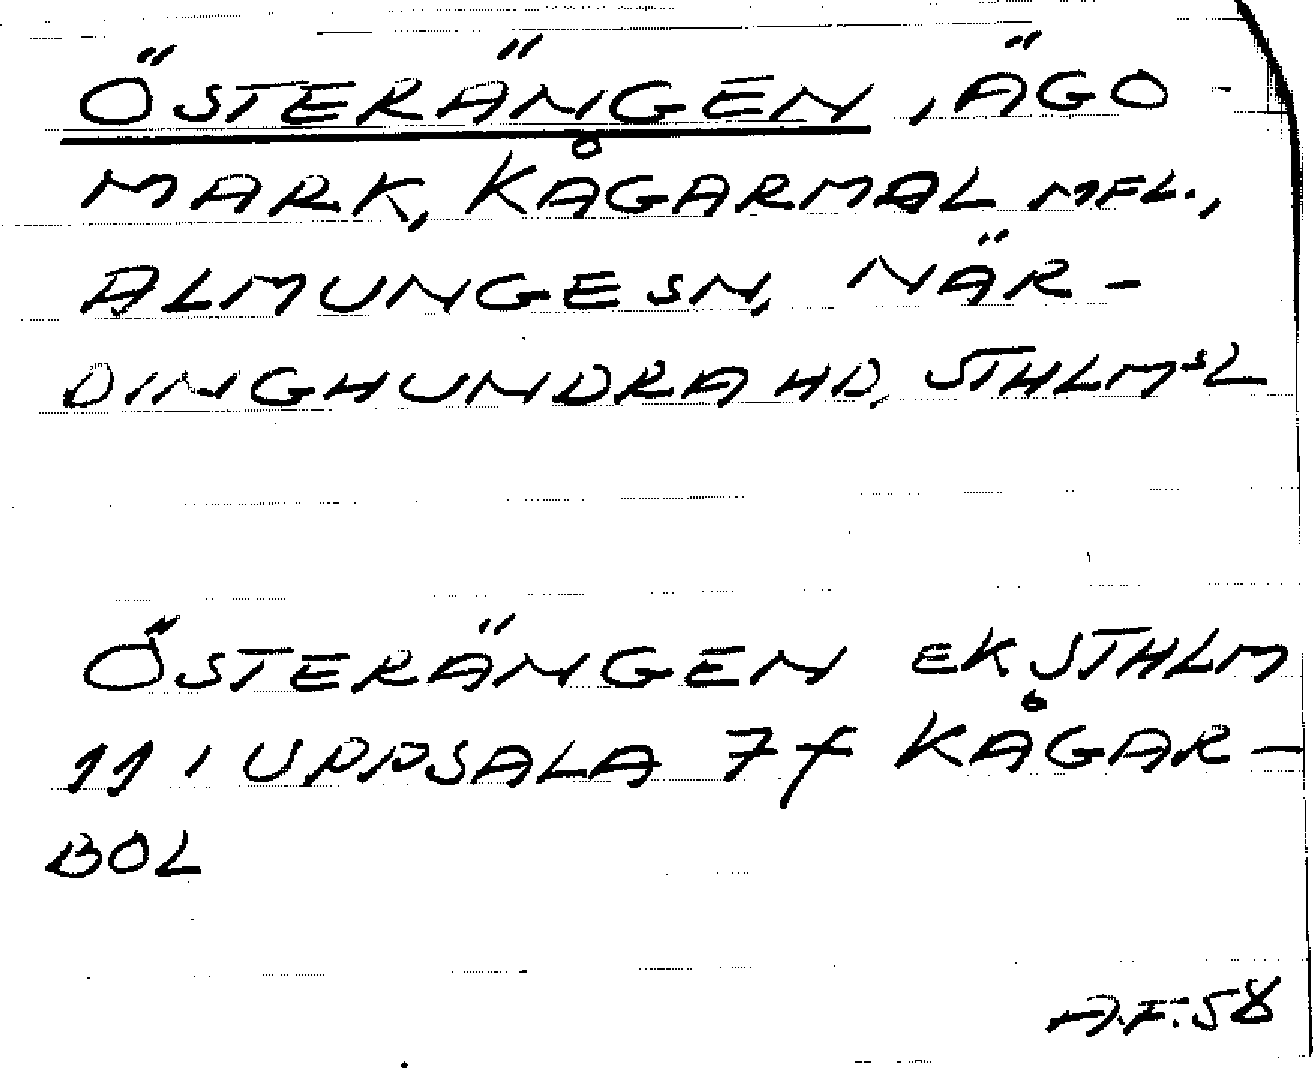 ÖSTERÄNGEN, ÄGO-
MARK, KÅGARMAL MFL.,
ALMUNGE SN, NÄR-
DINGHUNDRA HD, STHLMSL
ÖSTERÄNGEN EK STHLM
11 I UPPSALA 7f KÅGAR-
BOL
A.F. 58